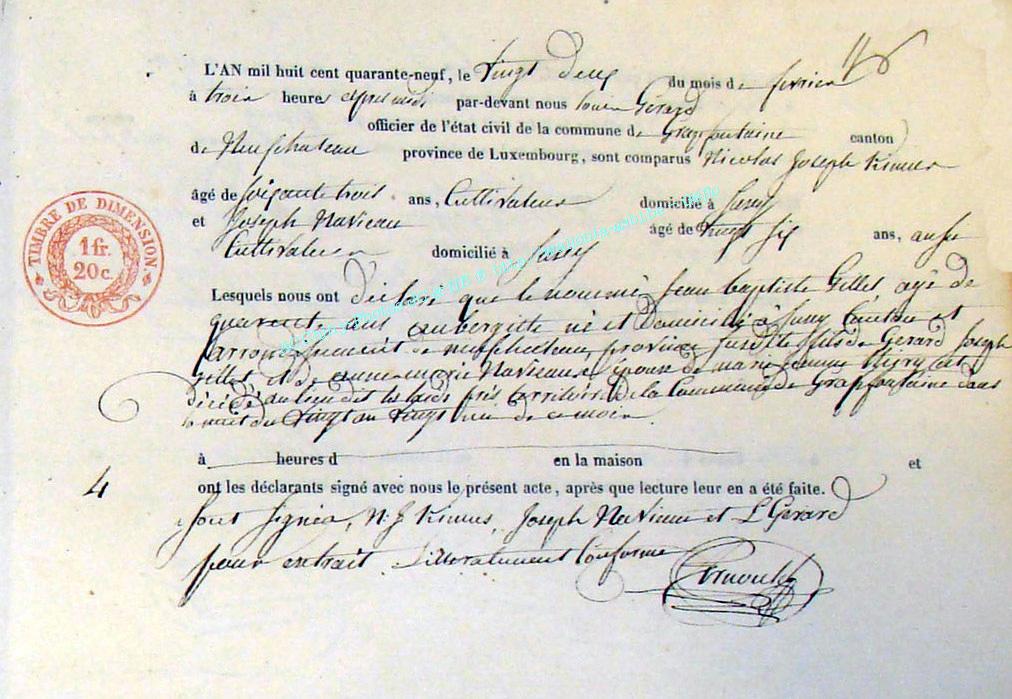 L'AN mil huit cent quarante-neuf, le vingt deux du mois de fevrier
à trois heures apres midi par-devant nous Louis Gerard
officier de l'état civil de la commune de Grapfontaine canton
de Neufchateau province de Luxembourg, sont comparus Nicolas Joseph
âgé de soixante trois ans, Cultivateur domicilié à Suxy
et Joseph Navieau âgé de vingt six ans, aussi
Cultivateur domicilié à Suxy
TIMBRE DE DIMENSION
1 fr.
20 c.
Lesquels nous ont déclaré que le nommé Jean baptiste Gillet agé de
quarante ans aubergiste né et domicilié à Suxy Canton et
arrondissement de neufchateau province susdite fils de Gerard Joseph
gillet et de anne marie Navieau époux de marie jeanne est
décédé au lieu dit les territoire de la Commune de Grapfontaine dans
la nuit du vingt au vingt un de ce mois
à heures d en la maison et
4
ont les déclarants signé avec nous le présent acte, après que lecture leur en a été faite.
Sont signés, N. J. Joseph Navieau et L Gerard
pour extrait Litteralement Conforme